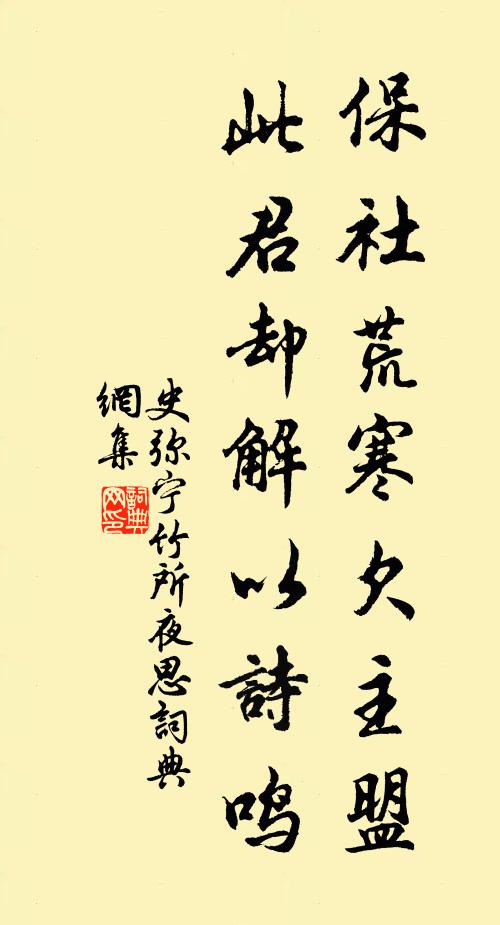 保社荒寒欠主盟
此君却解以詩鳴
史弥宁竹所夜思詞典
網集
詞典
网印